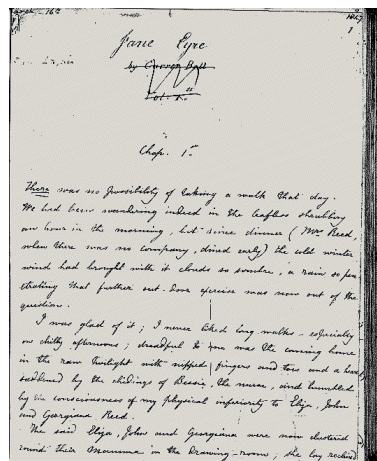 March 16th
1847
1
Jane Eyre
by Currer Bell
Vol. 1.st
Chap. 1st
There was no possibility of taking a walk that day.
We had been wandering indeed in the leafless shrubbery
an hour in the morning, but since dinner (Mrs Reed,
when there was no company, dined early) the cold winter
wind had brought with it clouds so sombre, a rain so pene
trating that further out-door exercise was now out of the
question.
I was glad of it; I never liked long walks - especially
on chilly afternoons; dreadful to me was the coming home
in the raw twilight with nipped fingers and toes and a heart
saddened by the chidings of Bessie, the nurse, and humbled
by the consciousness of my physical inferiority to Eliza, John
and Georgiana Reed.
The said Eliza, John and Georgiana were now clustered
round their Mamma in the drawing-room; she lay reclined